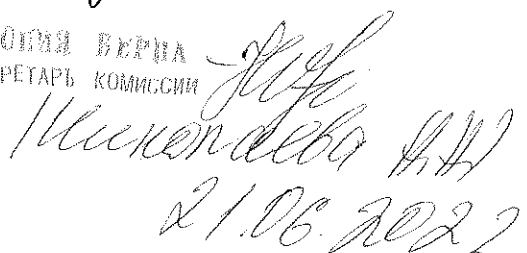 ОПИЯ ВЕРНА
РЕТАРЬ КОМИССИИ
Николаева
21.06.2022